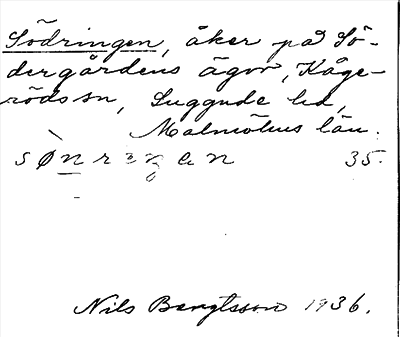 Södringen, åker på Sö-
dergårdens ägor, Kåge-
rödssn, Luggude hd,
Malmöhus län.
sø̀n̲rɜŋen 35.
Nils Bengtsson 1936.